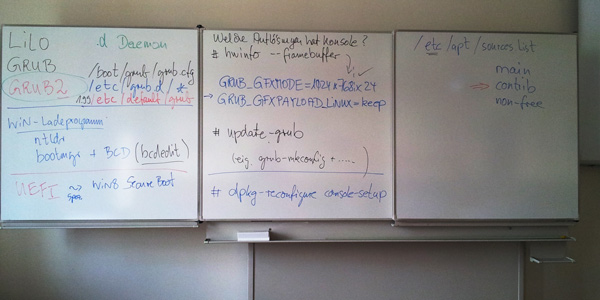 LiLO .d Daemon
GRUB /boot/grub/grub.cfg
GRUB2 /etc/grub.d/*
/etc/default/grub
WiN-Ladeprogramm
ntldr
bootmgr + BCD (bcdedit)
UEFI Win8 SecureBoot
Welche Auflösungen hat Konsole?
# hwinfo --framebuffer
GRUB_GFXMODE=1024x768x24
→ GRUB_GFXPAYLOAD_LINUX=keep
# update-grub
(eig. grub-mkconfig + .....)
# dpkg-reconfigure console-setup
/etc/apt/sources.list
main
→ contrib
non-free